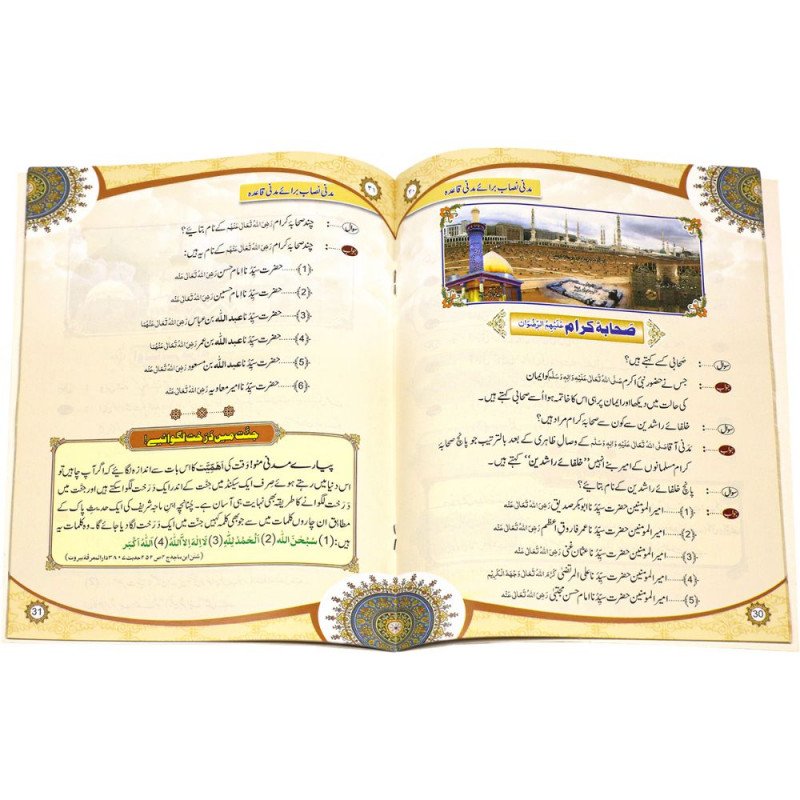 مدنی نصاب برائے مدنی قاعدہ
۳۰
صحابۂ کرام عَلَیْہِمُ الرِّضْوَان
سوال: صحابی کسے کہتے ہیں؟
جواب: جس نے حضور نبیِّ اکرم صَلَّی اللہُ تَعَالٰی عَلَیْہِ وَاٰلِہٖ وَسَلَّم کو ایمان
کی حالت میں دیکھا اور ایمان پر ہی اس کا خاتمہ ہوا اُسے صحابی کہتے ہیں۔
سوال: خلفائے راشدین سے کون سے صحابۂ کرام مراد ہیں؟
جواب: مَدَنی آقا صَلَّی اللہُ تَعَالٰی عَلَیْہِ وَاٰلِہٖ وَسَلَّم کے وِصالِ ظاہری کے بعد بالترتیب جو پانچ صحابۂ
کرام مسلمانوں کے امیر بنے انہیں ”خلفائے راشدین“ کہتے ہیں۔
سوال: پانچ خلفائے راشدین کے نام بتائیے؟
جواب: (1)...... امیر المومنین حضرت سیِّدُنا ابو بکر صدیق رَضِیَ اللہُ تَعَالٰی عَنْہُ
(2)...... امیر المومنین حضرت سیِّدُنا عمر فاروقِ اعظم رَضِیَ اللہُ تَعَالٰی عَنْہُ
(3)...... امیر المومنین حضرت سیِّدُنا عثمان غنی رَضِیَ اللہُ تَعَالٰی عَنْہُ
(4)...... امیر المومنین حضرت سیِّدُنا علی المرتضیٰ کَرَّمَ اللہُ تَعَالٰی وَجْھَہُ الْکَرِیْم
(5)...... امیر المومنین حضرت سیِّدُنا امام حسن مجتبیٰ رَضِیَ اللہُ تَعَالٰی عَنْہُ
30
مدنی نصاب برائے مدنی قاعدہ
۳۱
سوال: چند صحابۂ کرام رَضِیَ اللہُ تَعَالٰی عَنْہُم کے نام بتائیے؟
جواب: چند صحابۂ کرام رَضِیَ اللہُ تَعَالٰی عَنْہُم کے نام یہ ہیں:
(1)...... حضرت سیِّدُنا امام حسن رَضِیَ اللہُ تَعَالٰی عَنْہُ
(2)...... حضرت سیِّدُنا امام حسین رَضِیَ اللہُ تَعَالٰی عَنْہُ
(3)...... حضرت سیِّدُنا عبد اللہ بن عباس رَضِیَ اللہُ تَعَالٰی عَنْہُمَا
(4)...... حضرت سیِّدُنا عبد اللہ بن عمر رَضِیَ اللہُ تَعَالٰی عَنْہُمَا
(5)...... حضرت سیِّدُنا عبد اللہ بن مسعود رَضِیَ اللہُ تَعَالٰی عَنْہُ
(6)...... حضرت سیِّدُنا امیر معاویہ رَضِیَ اللہُ تَعَالٰی عَنْہُ
جنّت میں دَرَخت لگوائیے!
پیارے مدنی منو! وَقت کی اَھَمِّیَّت کا اس بات سے اندازہ لگائیے کہ اگر آپ چاہیں تو
اس دنیا میں رہتے ہوئے صِرف ایک سیکنڈ میں جنّت کے اندر ایک دَرَخت لگوا سکتے ہیں اور جنّت میں
دَرَخت لگوانے کا طریقہ بھی نہایت ہی آسان ہے۔ چُنانچِہ ابنِ ماجہ شریف کی ایک حدیثِ پاک کے
مطابق ان چاروں کلمات میں سے جو بھی کلمہ کہیں جنّت میں ایک دَرَخت لگا دیا جائے گا۔ وہ کلمات یہ
ہیں: (1) سُبْحٰنَ اللہ (2) اَلْحَمْدُ لِلّٰہ (3) لَا اِلٰہَ اِلَّا اللہ (4) اَللہُ اَکْبَر
(سُنَنِ ابن ماجہ ج۴ ص۲۵۲ حدیث ۳۸۰۷ دارالمعرفۃ بیروت)
31